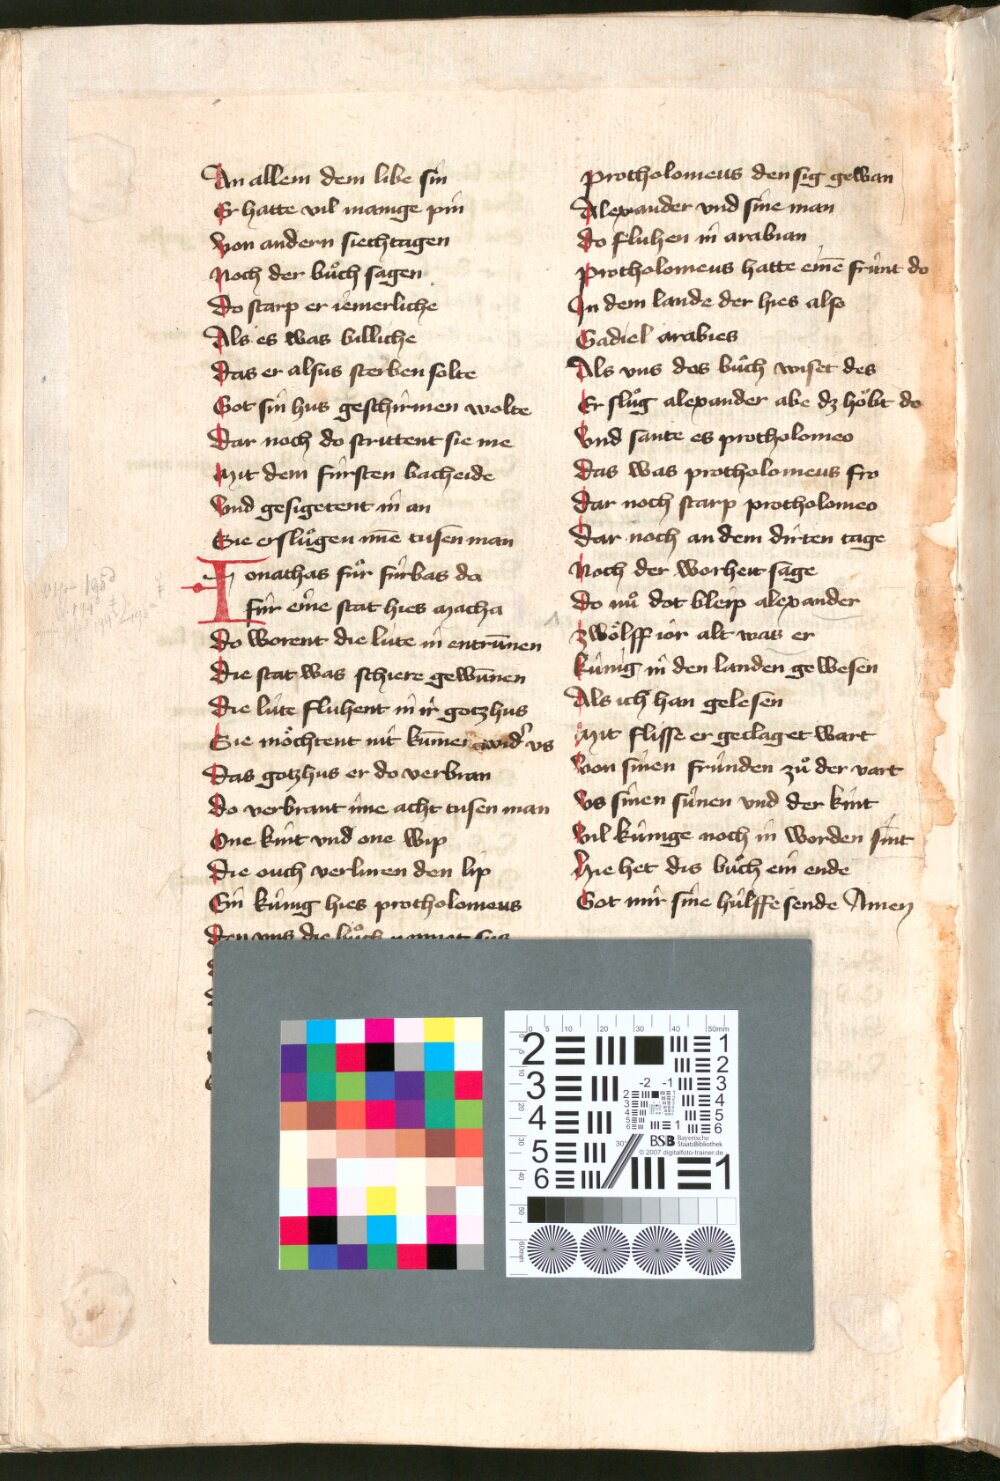 An allem dem libe sin
Er hatte vil manige pin
Von andern siechtagen
Noch der bůch sagen
Do starp er iemerliche
Als es was billiche
Das er alsus sterben solte
Got sin hus geschirmen wolte
Dar noch do strittent sie me
Mit dem fürsten bacheide
Vnd gesigetent in an
Sie erslůgen ime tusen man
Jonathas fůr fürbas do
für eine stat hies macha
Do worent die lute in entrūnen
Die stat was schiere gewūnen
Die lüte fluhent in ir gotzhus
Sie möchtent nit kūmen wider vs
Das gotzhus er do verbran
Do verbrant ime acht tusen man
One kint vnd one wip
Die ouch verluren den lip
Ein künig hies protholomeus
Den vns die bůch nennet sus
Protholomeus den sig gewan
Alexander vnd sine man
Do fluhen in arabian
Protholomeus hatte einē frünt do
In dem lande der hies also
Gadiel arabies
Als vns das bůch wiset des
Er slůg alexander abe dz höbit do
Vnd sante es protholomeo
Das was protholomeus fro
Dar noch starp protholomeo
Dar noch an dem dirten tage
Noch der worheit sage
Do nů dot bleip alexander
Zwölff ior alt was er
Künig in den landen gewesen
Als ich han gelesen
Mit flisse er geclaget wart
Von sinen fründen zů der vart
Vs sinen sünen vnd der kint
Vil künige noch in worden sint
Hie het dis bůch ein ende
Got mir sine hülffe sende Amen
0 5 10 20 30 40 50mm
2 3 4 5 6
1 2 3 4 5 6
-2 -1
1
BSB Bayerische StaatsBibliothek
© 2007 digitalfoto-trainer.de
1